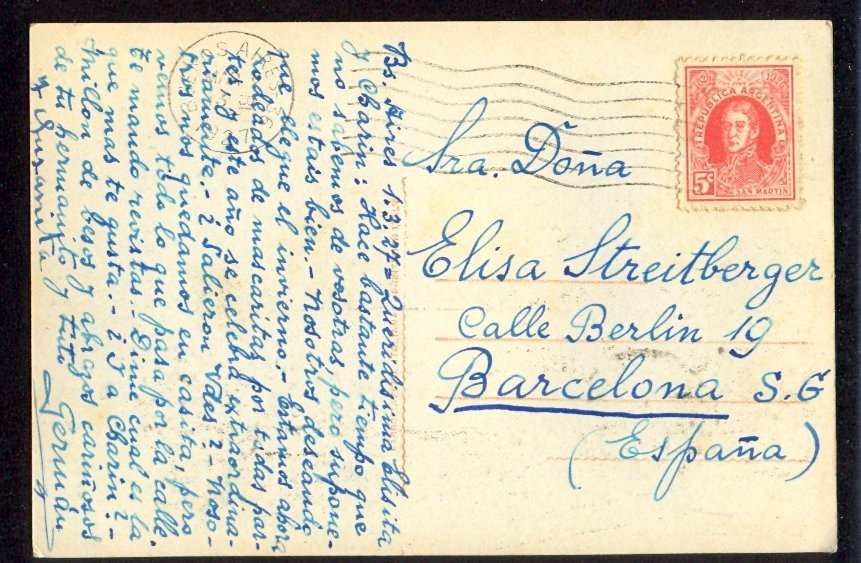 Bs. Aires 1.3.27 = Queridisima Elisita
y Charin: Hace bastante tiempo que
no sabemos de vosotras, pero supone-
mos estais bien. - Nosotros deseando
que llegue el invierno. - Estamos ahora
rodeados de mascaritas por todas par-
tes, y este año se celebra extraordina-
riamente. - ¿Salieron Vdes? - Noso-
tros nos quedamos en casita, pero
vemos todo lo que pasa por la calle.
Te mando revistas. - Dime cual es la
que mas te gusta. - ¿Y a Charin? -
Millon de besos y abrazos cariñosos
de tu hermanito y Tuti Germán
y Suzanita
S. AIRES
1927
REPUBLICA ARGENTINA
5c
SAN MARTIN
Sra. Doña
Elisa Streitberger
Calle Berlin 19
Barcelona S.G
(España)